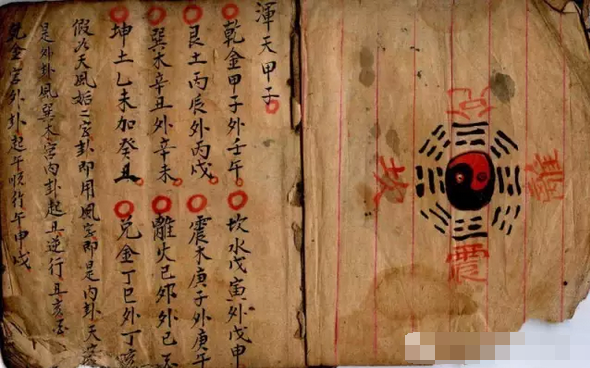 渾天甲子
乾金甲子外壬午 坎水戊寅外戊申
艮土丙辰外丙戌 震木庚子外庚午
巽木辛丑外辛未 離火己卯外己
坤土乙未加癸丑 兌金丁巳外丁亥
假如天風姤二宮卦即用風宮即是内卦天宮
是外卦風巽木宮内卦起丑逆行丑亥
乾金宮外卦起午順行午申戌
離
坎
震